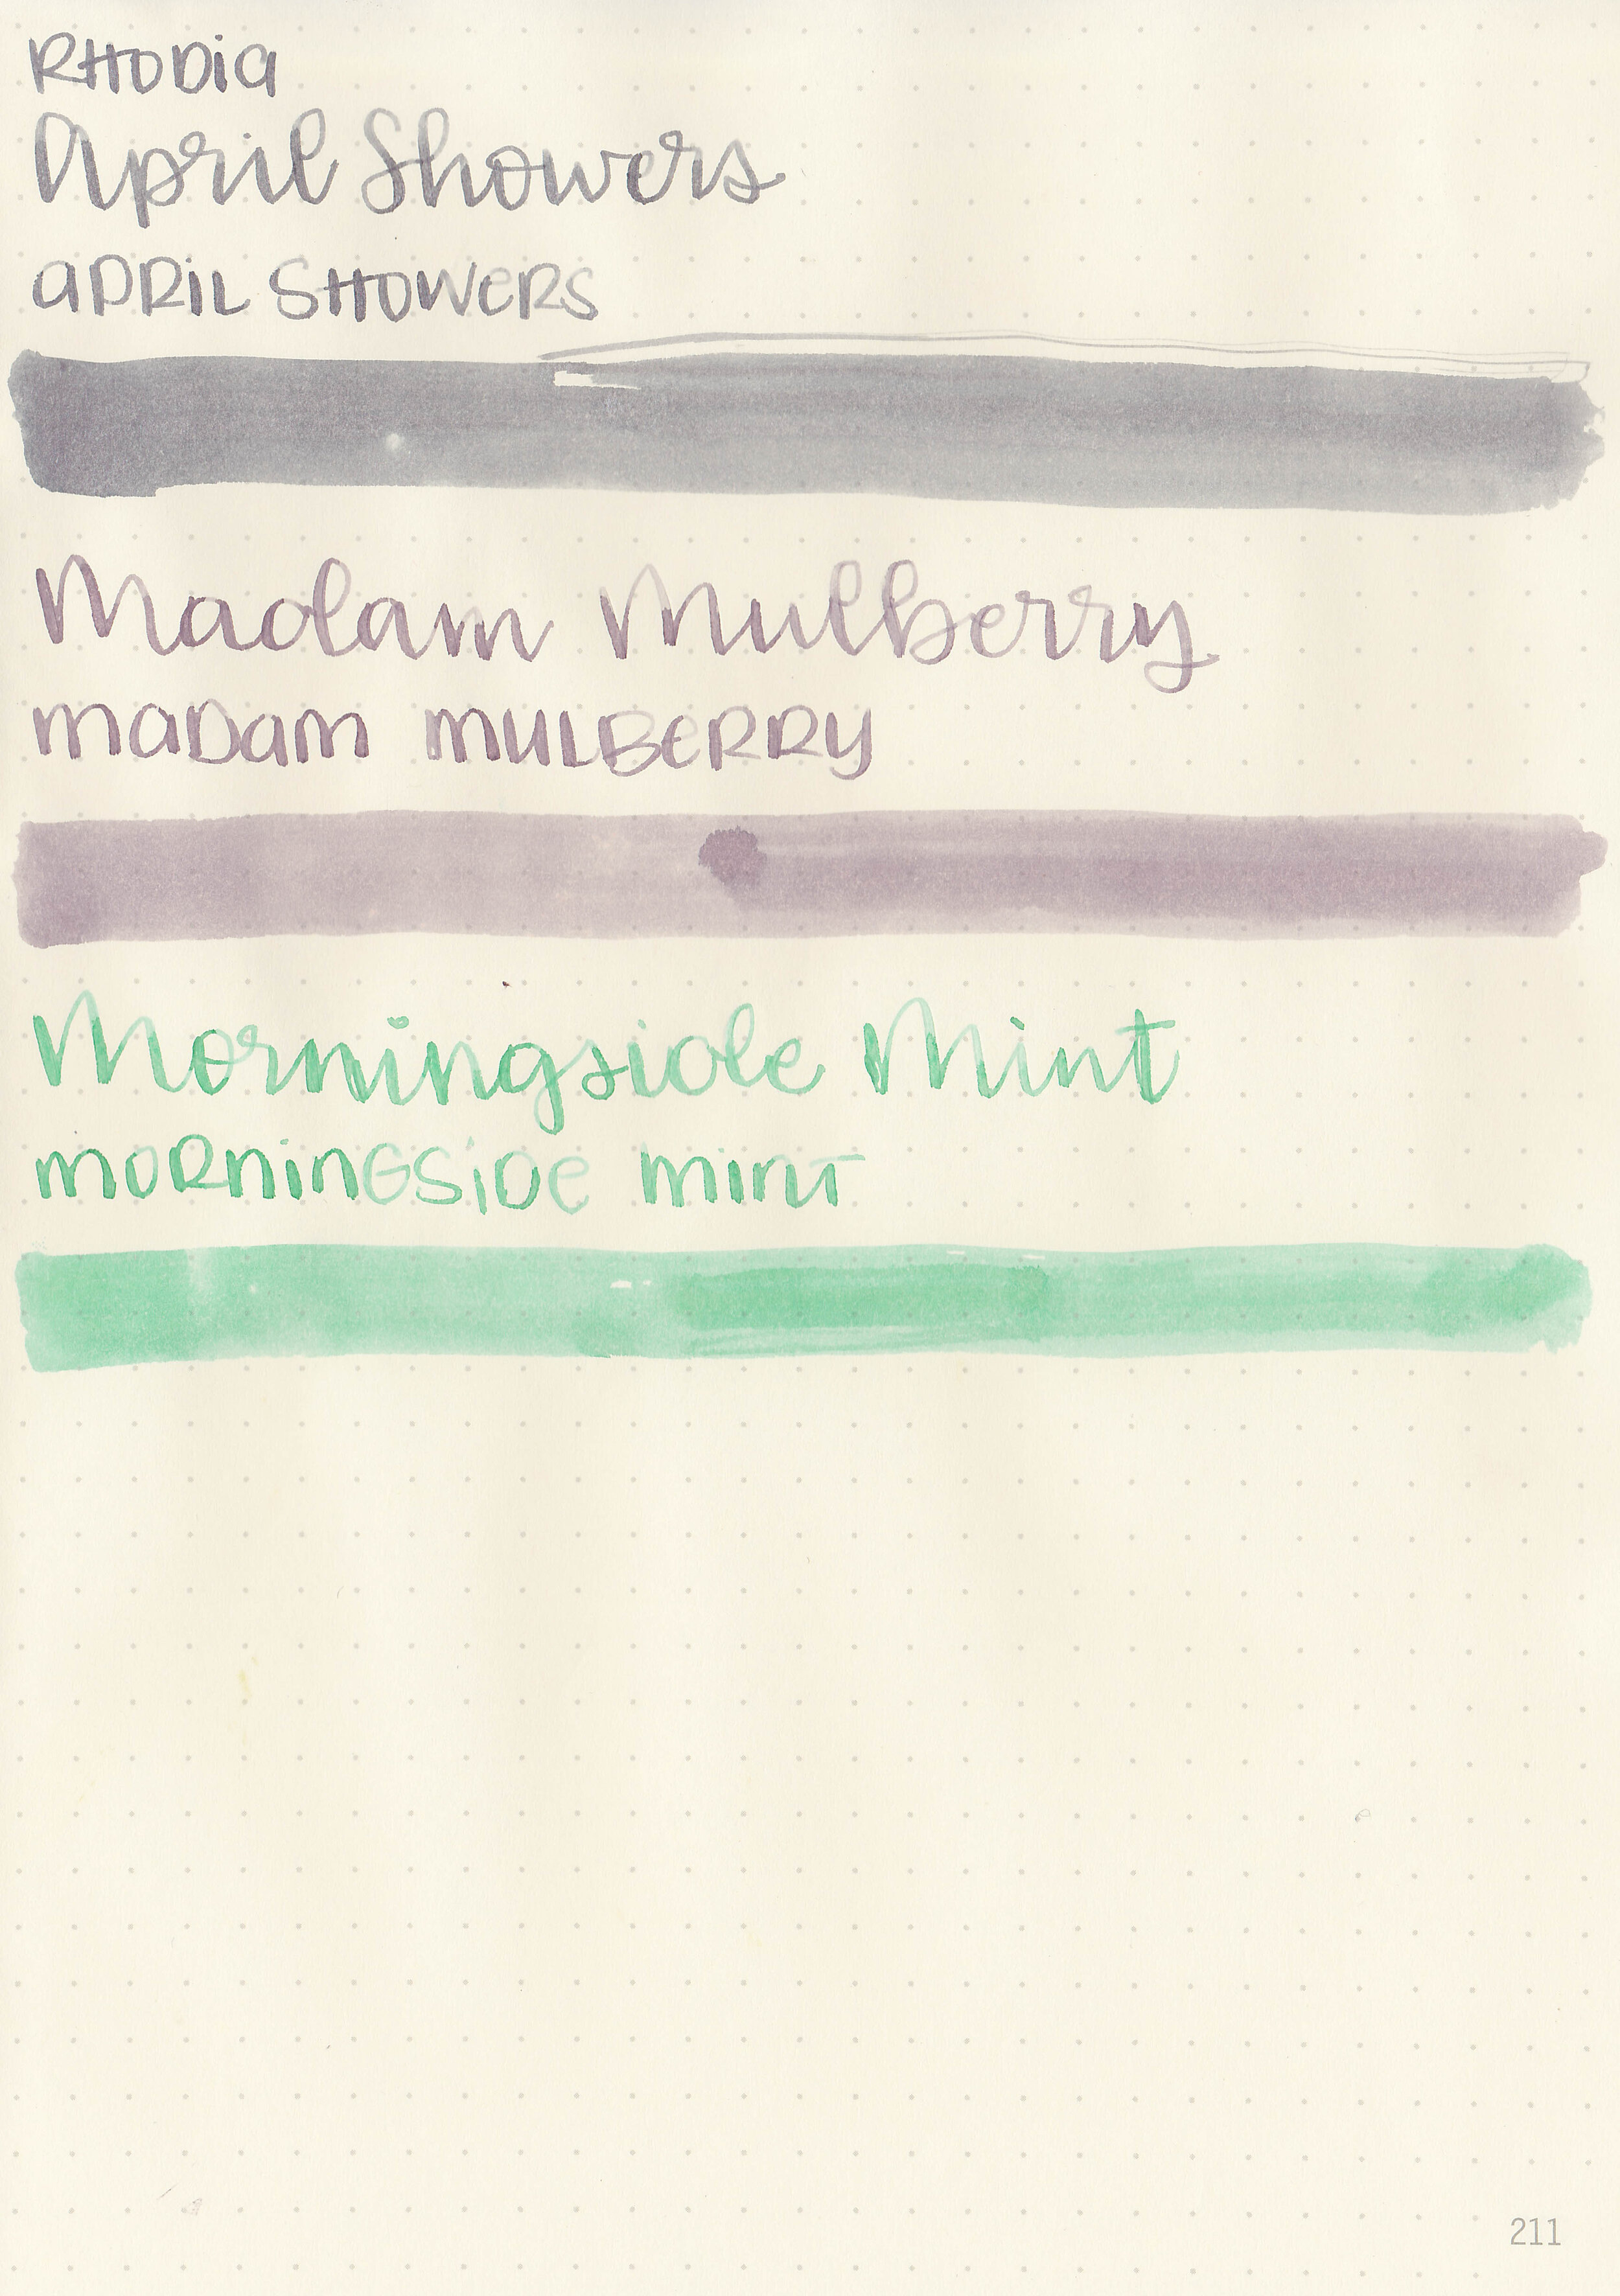 RHODia
April Showers
aPRiL SHOWeRS
Madam Mulberry
maDam MULBeRRY
Morningside Mint
moRninGSiDe mint
211